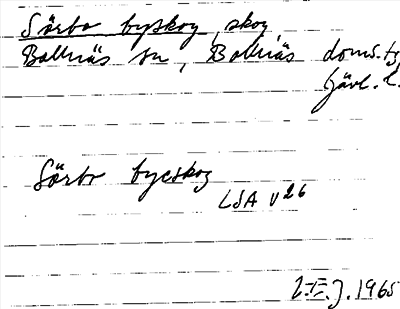 Sörbo byskog, skog
Bollnäs sn, Bollnäs doms.tg
Gävl. l.
Sörbo byeskog
LSA V 26
J. 1965